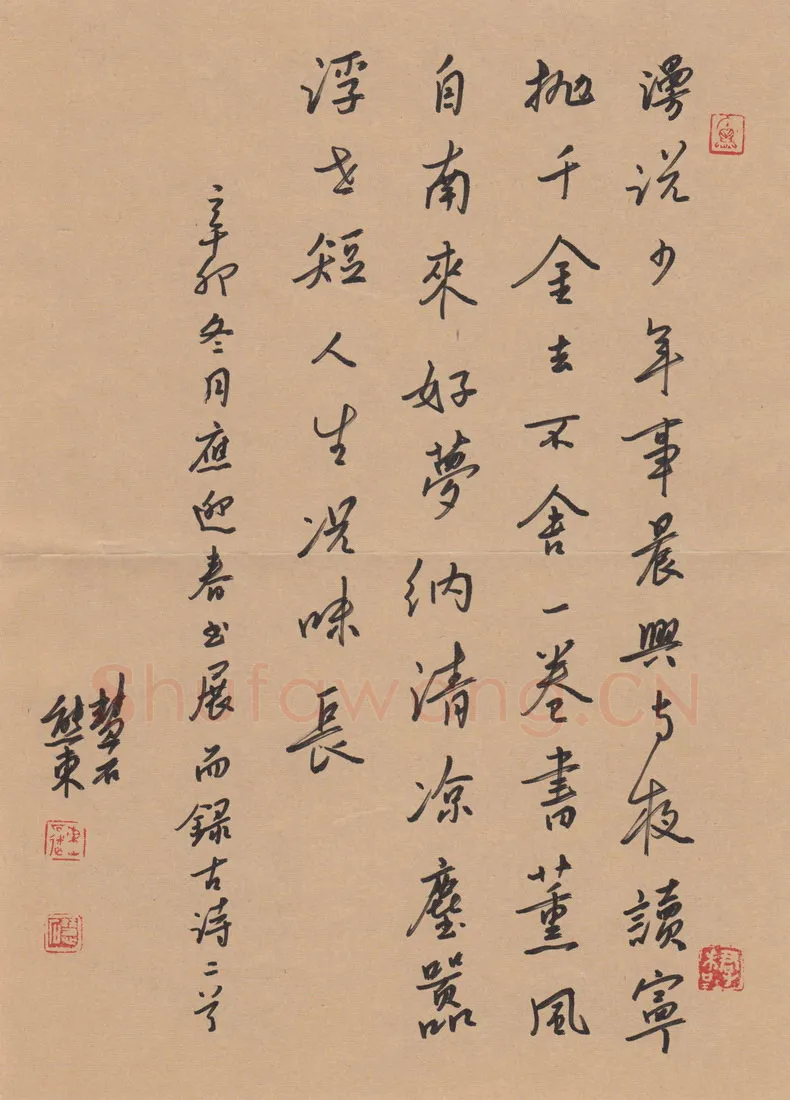 漫说少年事晨興与夜讀寧
抛千金去不舍一卷書薰風
自南來好夢纳清凉塵嚣
浮世短人生况味長
辛卯冬月應迎春书展而録古诗二首
石
熊東
Shufawang.CN